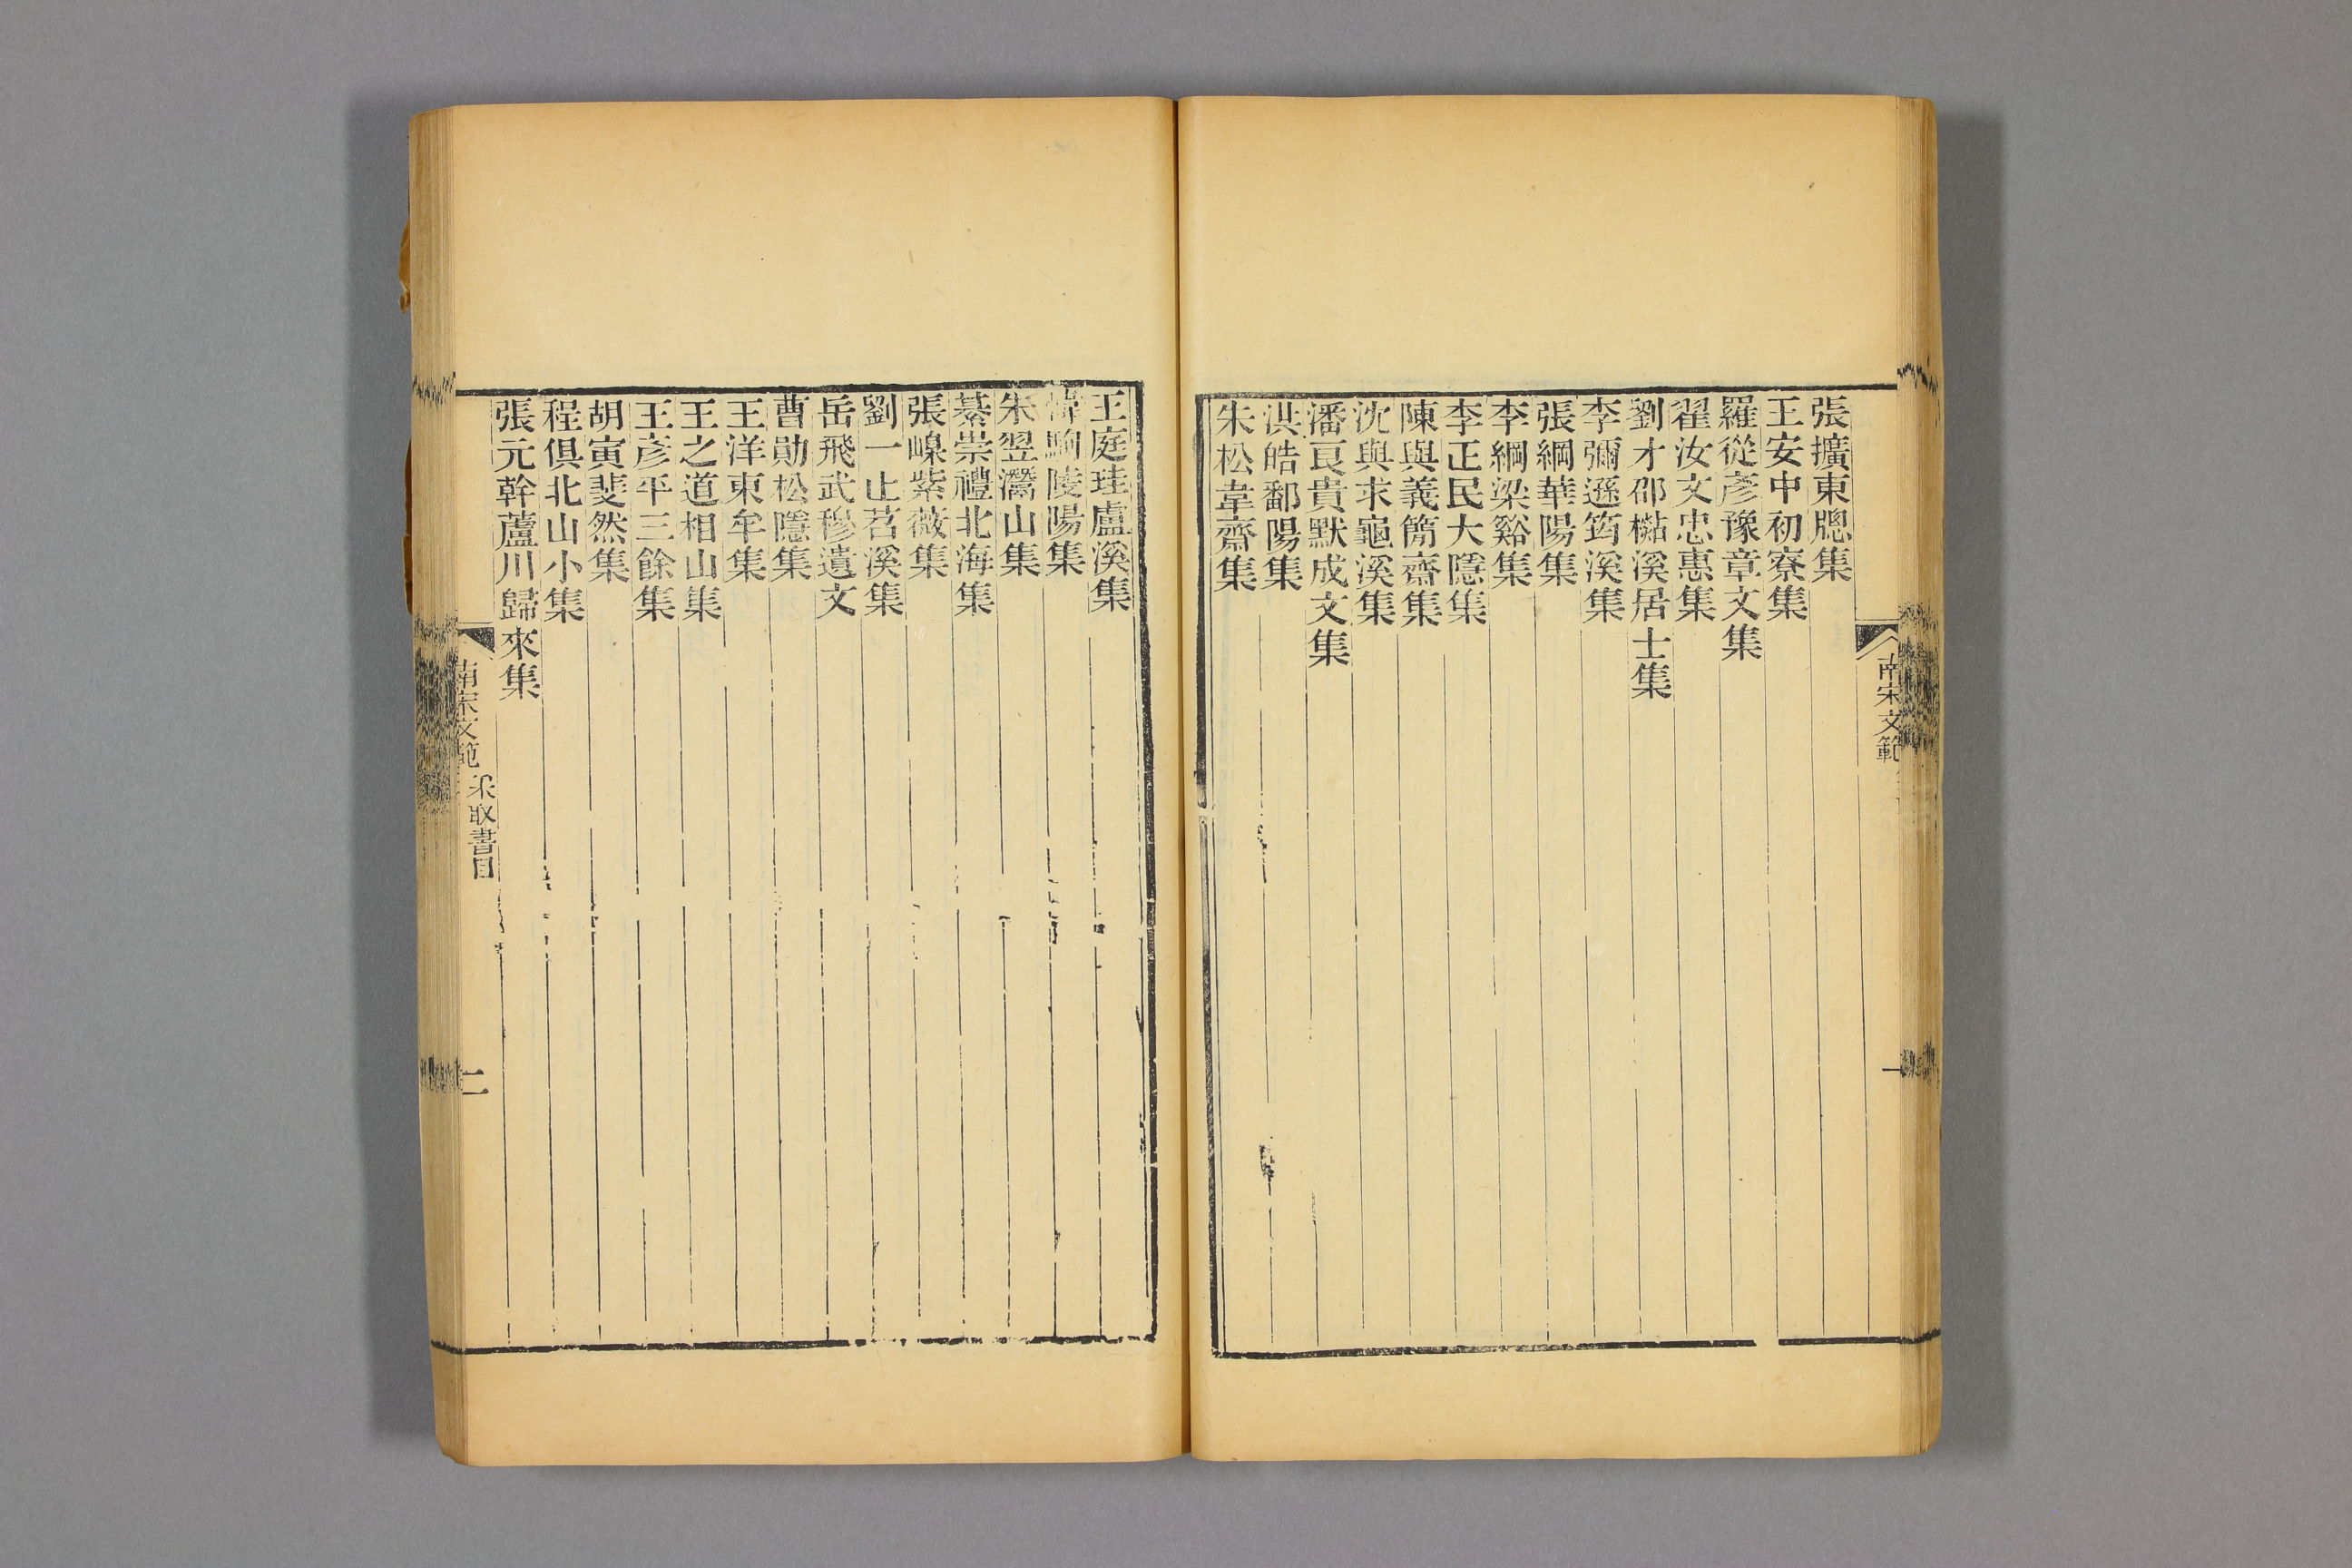 南宋文範
一
張擴東牎集
王安中初寮集
羅從彥豫章文集
翟汝文忠惠集
劉才邵檆溪居士集
李彌遜筠溪集
張綱華陽集
李綱梁谿集
李正民大隱集
陳與義簡齋集
沈與求龜溪集
潘良貴默成文集
洪皓鄱陽集
朱松韋齋集
王庭珪盧溪集
韓駒陵陽集
朱翌灊山集
綦崇禮北海集
張嵲紫薇集
劉一止苕溪集
岳飛武穆遺文
曹勛松隱集
王洋東牟集
王之道相山集
王彥平三餘集
胡寅斐然集
程俱北山小集
張元幹蘆川歸來集
南宋文範 采取書目
二